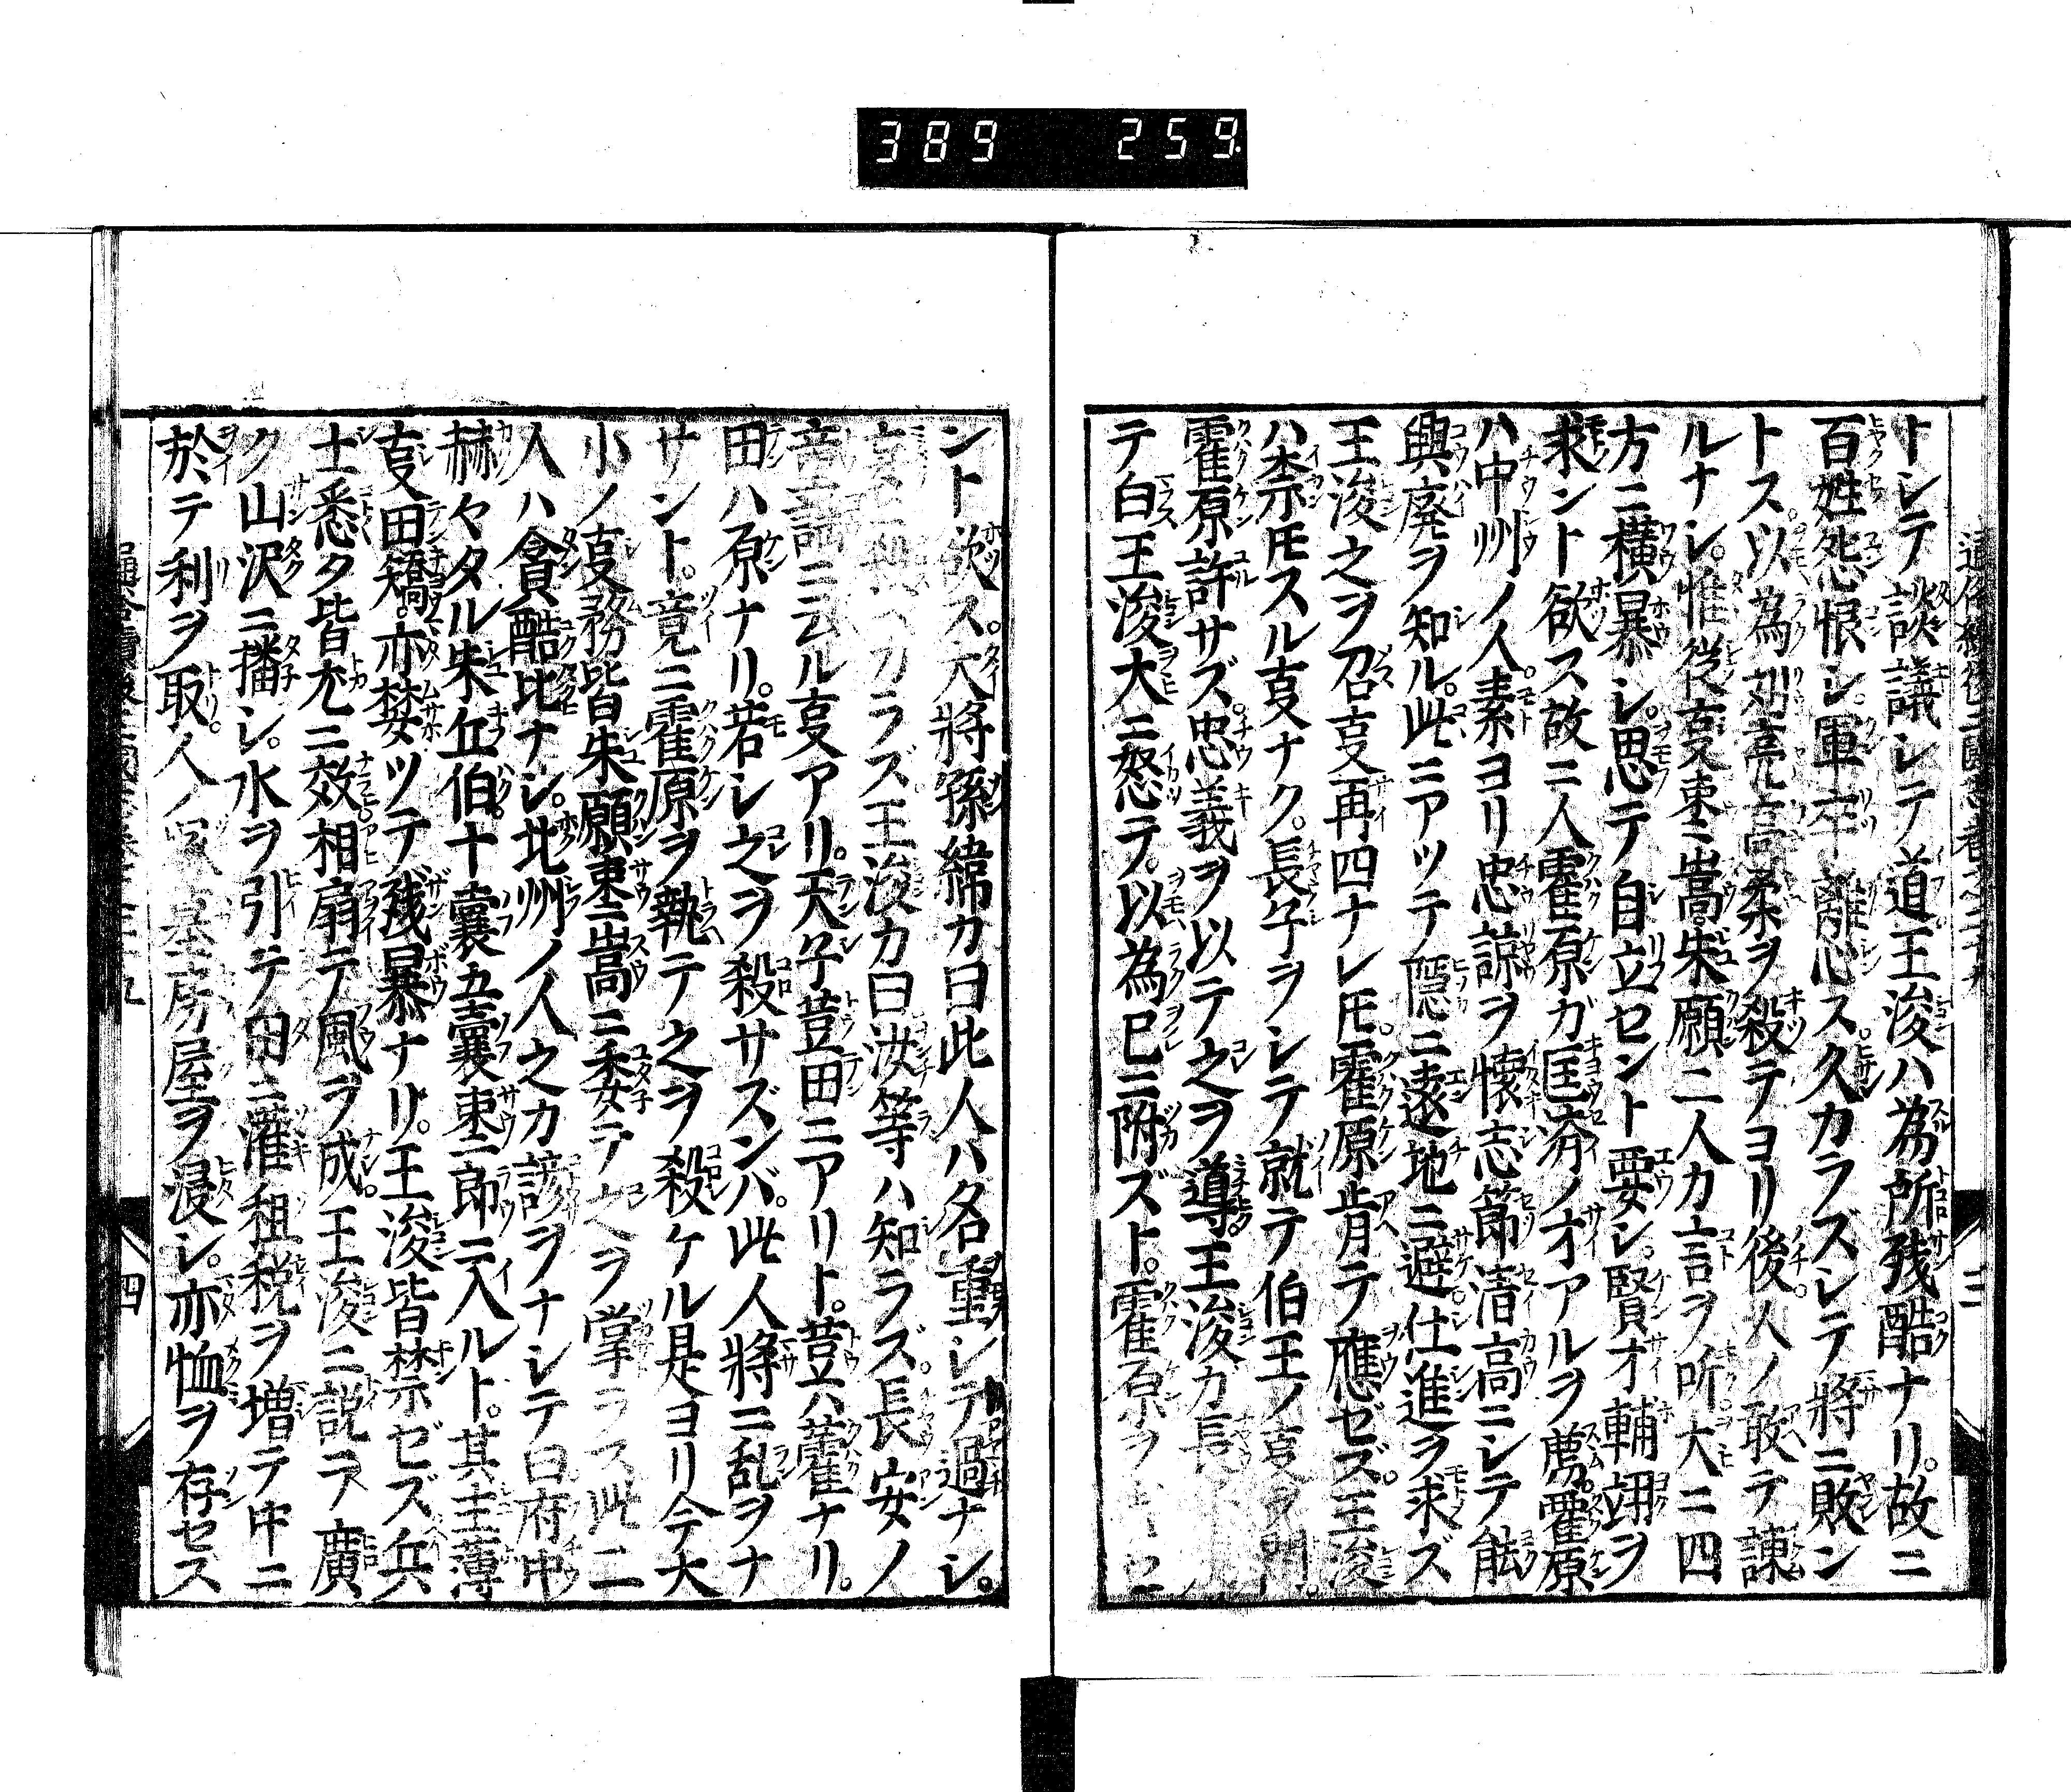 389 259
トシテ談議シテ道王浚ハ為所残酷ナリ。故ニ
百姓怨恨シ。軍卒離心ス。久カラズシテ將ニ敗ン
トス以為刘亮高柔ヲ殺テヨリ後人ノ敢テ諌
ルナシ。惟従事棗嵩。朱願二人カ言ヲ听大ニ四
方ニ横暴シ。思テ自立セント要シ。賢才輔翊ヲ
求ント欲ス故ニ人霍原ガ匡済ノ才アルヲ薦。霍原
ハ中州ノ人。素ヨリ忠諒ヲ懐志節清高ニシテ能
興廃ヲ知ル。此ニアツテ隠ニ遠地ニ避仕進ヲ求ズ
王浚之ヲ召事再四ナレ𪜈。霍原肯テ應ゼズ。王浚
ハ柰𪜈スル事ナク。長子ヲシテ就テ伯王ノ事ヲ問。
霍原許サズ。忠義ヲ以テ之ヲ導王浚カ長
テ白王浚大ニ怒テ。以為已ニ附ズト。霍原ヲ
ント欲ス。大將孫緯カ曰此人ハ名重シテ過ナシ。
カラズ王浚カ曰汝等ハ知ラズ。長安ノ
童謡ニ云ル事アリ。天子荳田ニアリト。荳六藿ナリ。
田ハ原ナリ。若シ之ヲ殺サズンバ。此人將ニ乱ヲナ
サント。竟ニ霍原ヲ執テ之ヲ殺ケル是ヨリ今大
小ノ事務皆朱願棗嵩ニ委テ之ヲ掌ラス此二
人ハ貪酷比ナシ。北州ノ人之カ諺ヲナシテ曰府中
赫々タル朱丘伯。十囊五囊棗郎ニ入ルト。其主薄
事田矯。亦婪ツテ残暴ナリ。王浚皆禁ゼズ兵
士悉タ皆尤ニ效相扇テ風ヲ成。王浚ニ説テ廣
ク山沢ニ播シ。水ヲ引テ田ニ灌租税ヲ増テ中ニ
於テ利ヲ取。人ノ墓房屋ヲ浸シ。亦恤ヲ存セス
三
四